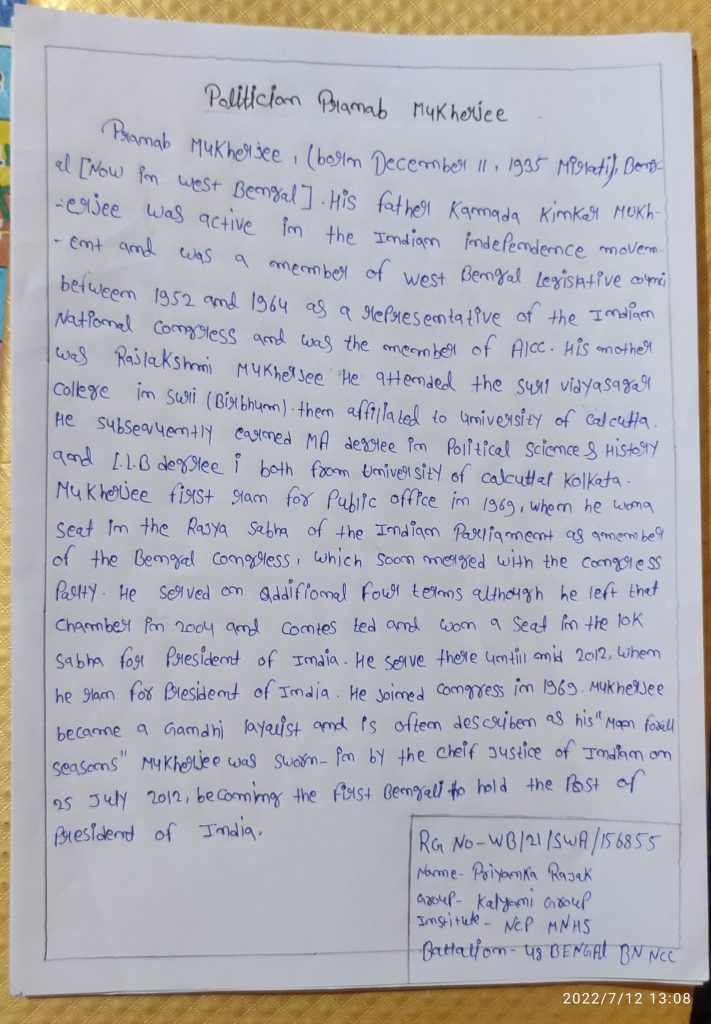 Politician Pranab Mukherjee
Pranab Mukherjee, (born December 11, 1935 Mirati), Beng-
al [Now in west Bengal]. His father Kamada Kinkar Mukh-
-erjee was active in the Indian independence movem-
-ent and was a member of west Bengal legislative counci
between 1952 and 1964 as a representative of the Indian
National Congress and was the member of AICC. His mother
was Rajlakshmi Mukherjee He attended the suri vidyasagar
College in suri (Birbhum). then affiliated to university of calcutta.
He subsequently earned MA degree in Political Science & History
and L.L.B degree i both from University of calcutta Kolkata.
Mukherjee first ran for Public office in 1969, when he wona
Seat in the Rajya Sabha of the Indian Parliament as amember
of the Bengal congress, which soon merged with the congress
Party. He served on additional four terms although he left that
chamber in 2004 and contes ted and won a seat in the lok
Sabha for President of India. He serve there untill mid 2012, when
he ran for President of India. He joined congress in 1969. Mukherjee
became a Gandhi layalist and is often describen as his "Man forall
seasons" Mukherjee was sworn-in by the cheif Justice of Indian on
25 July 2012, becoming the first Bengali to hold the Post of
President of India.
RG No-WB/21/SWA/156855
Name- Priyanka Rajak
Group- Kalyani Group
Institute- NCP MNHS
Battalion- 48 BENGAl BN NCC
2022/7/12 13:08